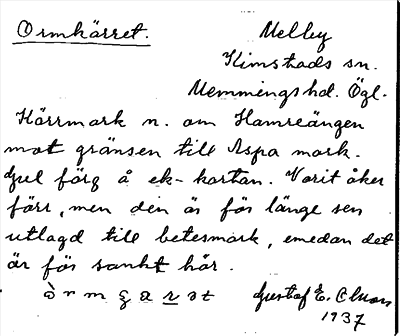 Ormkärret.
Melby
Kimstads sn.
Memmings hd. Ögl.
Kärrmark n. om Hamreängen
mot gränsen till Aspa mark.
Gul färg å ek-kartan. Varit åker
förr, men den är för länge sen
utlagd till betesmark, emedan det
är för sankt här.
Gustaf E. Olsson
1937